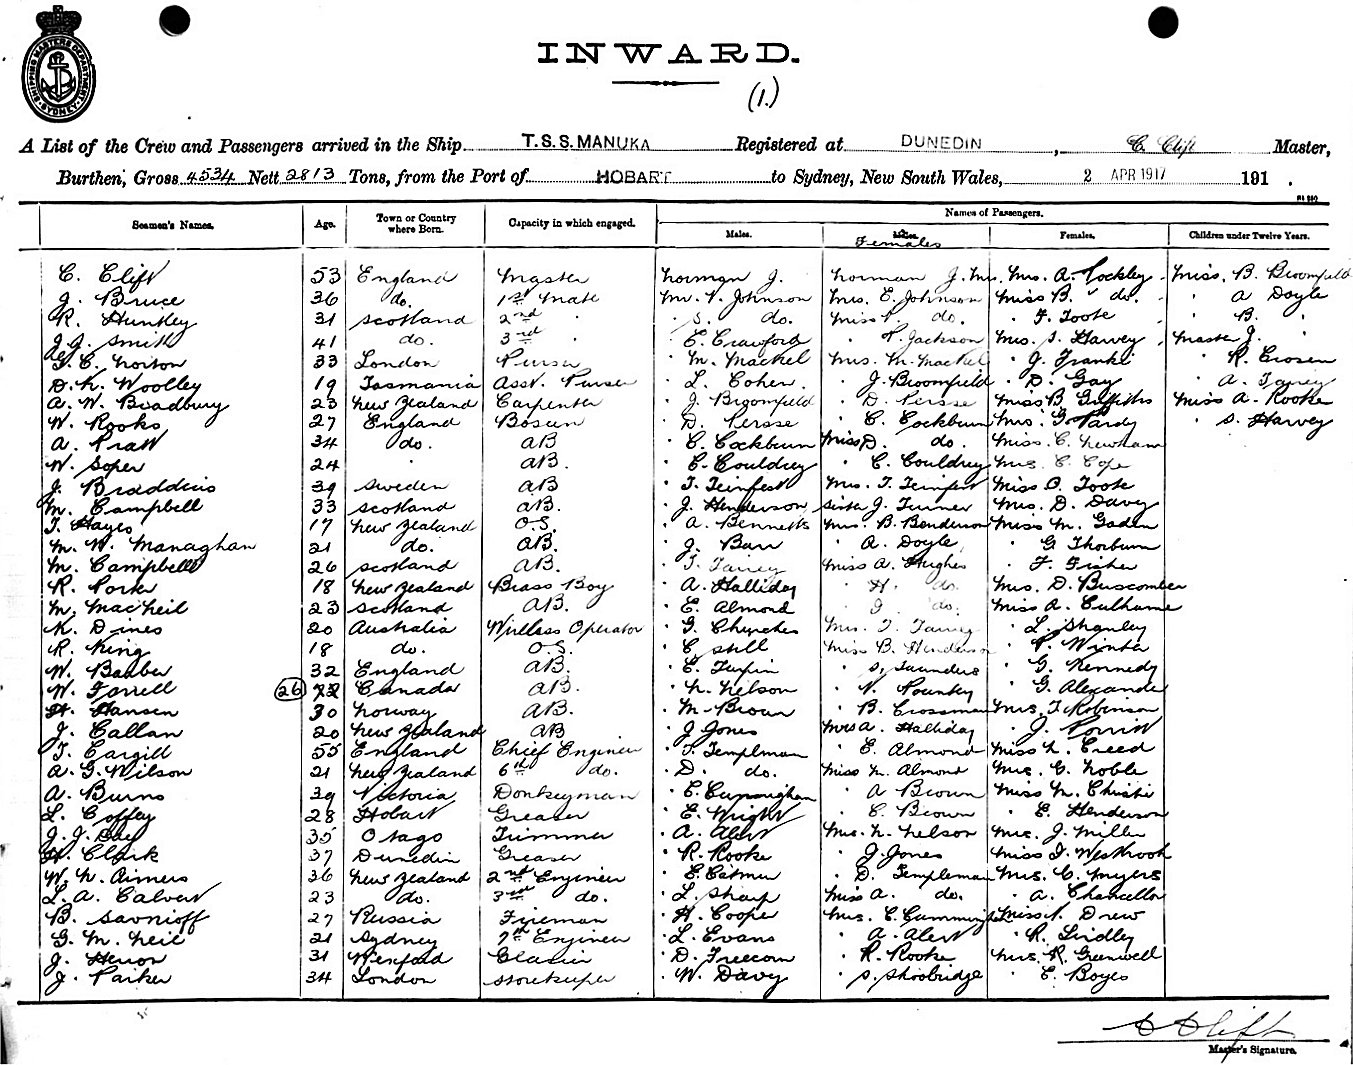 SHIPPING MASTERS DEPARTMENT SYDNEY
INWARD.
(1.)
A List of the Crew and Passengers arrived in the Ship T.S.S. MANUKA Registered at DUNEDIN , C. Clift Master,
Burthen, Gross 4534 Nett 2813 Tons, from the Port of HOBART to Sydney, New South Wales, 2 APR 1917 191 .
Names of Passengers.
Seamen's Names. Age. Town or Country where Born. Capacity in which engaged. Males. Females Females. Children under Twelve Years.
C. Clift 53 England Master Norman J. Norman J. Mrs. Mrs. A. Miss. B. Broomfield
J. Bruce 36 do. 1st Mate Mr. V. Johnson Mrs. E. Johnson Miss B. " do. " A Doyle
R. Huntley 31 Scotland 2nd " " S. do. Miss do. " F. Toote " B. "
J. J. Smith 41 do. 3rd " " E. Crawford " Jackson Mrs. S. Harvey Master J. "
C. Norton 33 London Purser " M. Mackel Mrs. M. Mackel " J. Franki " R. Crosen
D. N. Woolley 19 Tasmania Asst. Purser " L. Cohen. " J. Broomfield " D. Gay " A.
A. W. Bradbury 23 New Zealand Carpenter " J. Broomfield " D. Persse Miss B Griffiths Miss A. Rooke
W. Rooks 27 England Bosun " D. Persse " C. Cockburn Mrs. G. Pardy " S. Harvey
A. Pratt 34 do. AB " C. Cockburn Miss D. do. Miss C. Newham
W. Soper 24 " AB. " C. Couldrey " C. Couldrey Mrs. C. Cope
J. Braddins 39 Sweden AB " T. Teinfest Mrs. T. Teinfest Miss O. Toote
M. Campbell 33 Scotland AB. " J. Henderson Sister J. Turner Mrs. D. Davy
T. Hayes 17 New Zealand O.S. " A. Bennetts Mrs. B. Benderson Miss M. Gaden
M. W. Managhan 21 do. AB. " J. Barr " A. Doyle " G Thorburn
M. Campbell 26 Scotland AB. " Miss A. Hughes " F. Fisher
R. Pork 18 New Zealand Brass Boy " A. Halliday " H. do. Mrs. D. Buscomber
M. MacNeil 23 Scotland AB. " E. Almond " J. do. Miss A. Culhame
K. Dines 20 Australia Wireless Operator " G. Churches Mrs. " L. Shanley
R. King 18 do. O.S. " C Still Miss B. Henderson " Winter
W. Barber 32 England AB. " E. Turpin " S. Saunders " G. Kennedy
W. Farrell (26) Canada AB. " N. Nelson " V. Pounky " G. Alexander
H. Hansen 30 Norway AB. " M. Brown " B. Crossman Mrs. T. Robinson
J. Callan 20 New Zealand AB " J Jones Mrs A. Halliday " J.
T. Cargill 55 England Chief Engineer " T. Templeman " E. Almond Miss L. Creed
A. G. Wilson 21 New Zealand 6th do. " D. do. Miss N. Almond Mrs. C. Noble
A. Burns 39 Victoria Donkeyman " C. " A Brown Miss N. Christie
L. Coffey 28 Hobart Greaser " E. Wright " C. Brown " E. Henderson
J. J. Day 35 Otago Trimmer " A. Alert Mrs. N. Nelson Mrs. J. Miller
H. Clark 37 Dunedin Greaser " R. Rooke " J. Jones Miss I. Westbrook
W. N. Aimers 36 New Zealand 2nd Engineer " E. Eatmur " D. Templeman Mrs. C. Myers
L. A. Calvert 23 do. 3rd do. " L. Sharp Miss A. do. " A. Chancellor
B. Savnioff 27 Russia Fireman " H. Cooper Mrs. C. Cummings Miss Drew
G. M. Neil 21 Sydney 7th Engineer " L. Evans " A. Alert " R. Lindley
J. Heron 31 Wexford " D. Freecom " R. Rooke Mrs. R. Greenwell
J. Parker 34 London Storekeeper " W. Davy " S. Shoobridge " E. Boyes
C Clift
Master's Signature.